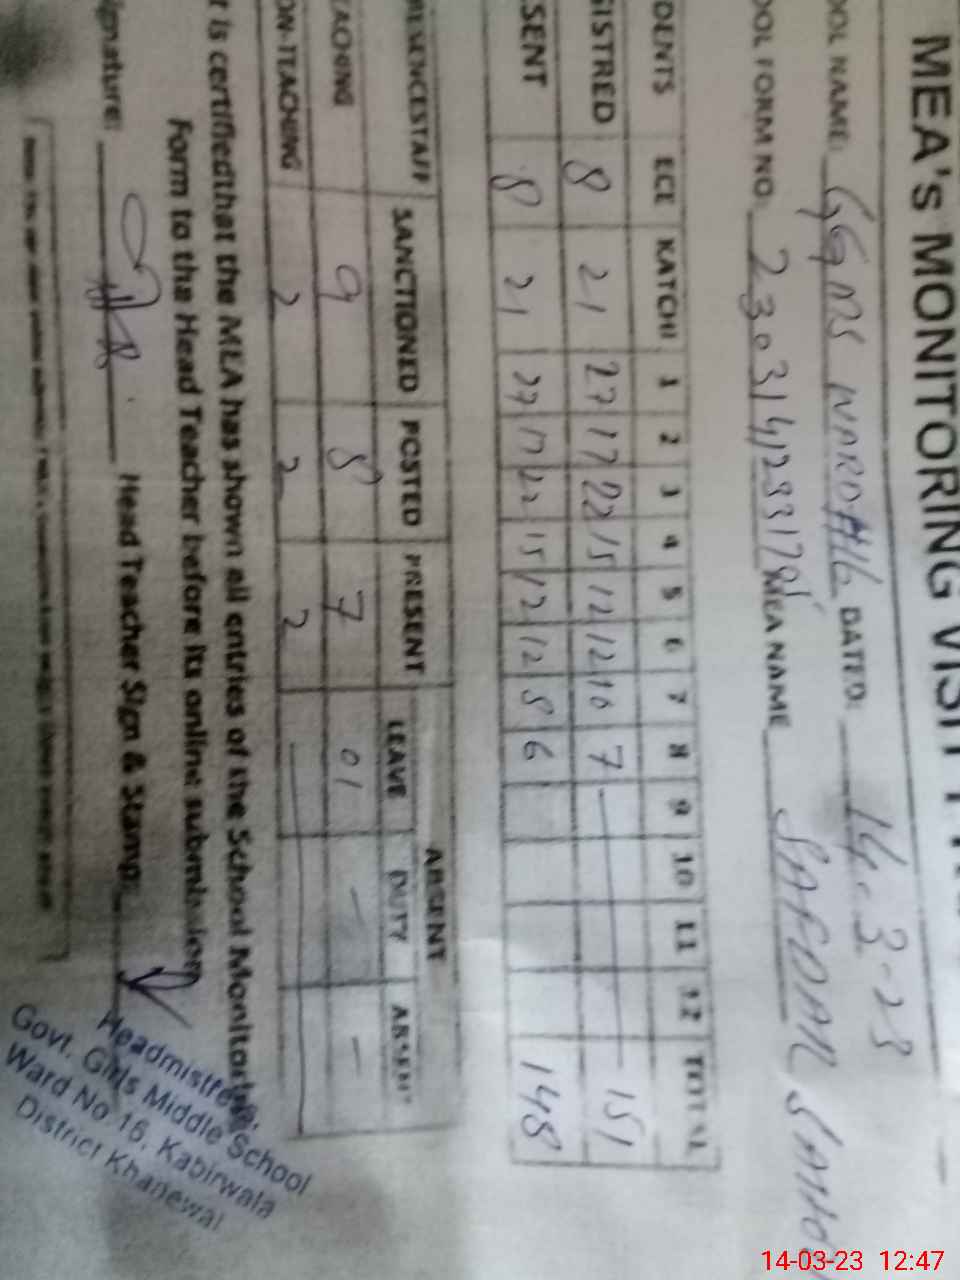 MEA's MONITORING VISIT
OOL NAME: GGMS WARD#16 DATED: 14.3-23
OOL FORM NO. AREA NAME
DENTS ECE KATCHI 1 2 3 4 5 6 7 8 9 10 11 12 TOTAL
GISTRED 8 21 27 17 22 15 12 12 10 7 151
SENT 8 21 27 17 22 15 12 12 8 6 148
RESENCESTAFF SANCTIONED POSTED PRESENT ABSENT
LEAVE DUTY ABSENT
EACHING 9 8 7 01 - -
ON-TEACHING 2 2 2
t is certifiedthat the MEA has shown all entries of the School Monitoring
Form to the Head Teacher before its online submission
ignature: Head Teacher Sign & Stamp:
Headmistress
Govt. Girls Middle School
Ward No 16, Kabirwala
District Khanewal
14-03-23 12:47